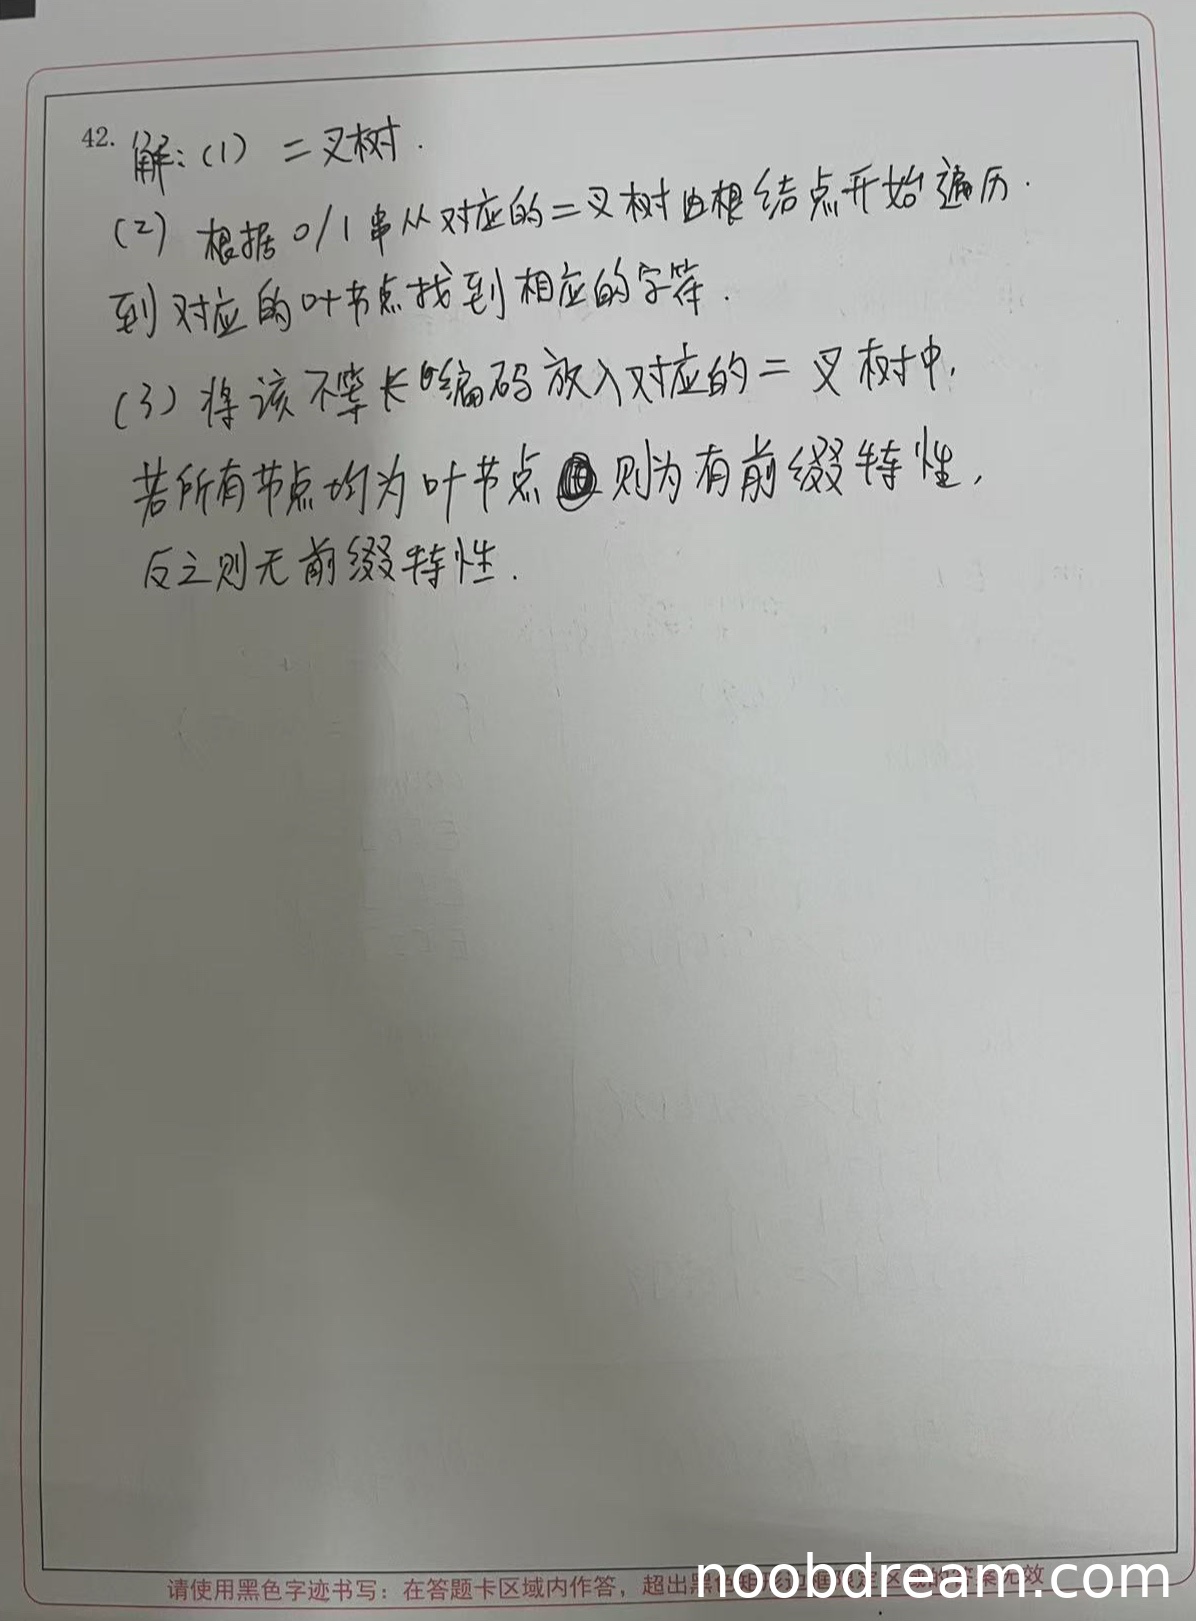 42. 解:(1) 二叉树.
(2) 根据0/1串从对应的二叉树由根结点开始遍历.
到对应的叶节点找到相应的字符.
(3) 将该不等长的编码放入对应的二叉树中,
若所有节点均为叶节点 则为有前缀特性,
反之则无前缀特性.
请使用黑色字迹书写:在答题卡区域内作答,超出黑
noobdream.com